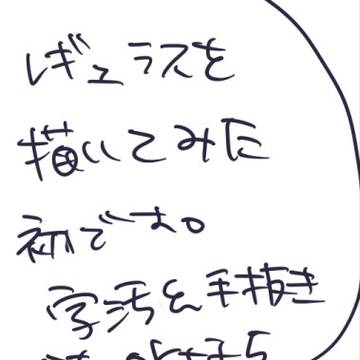 レギュラスを
描いてみた
初です。
字汚え手描き